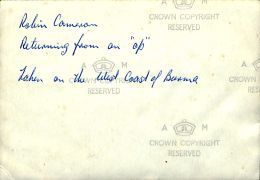 Robin Cameron
Returning from an "op"
Taken on the West Coast of Burma
A M
CROWN COPYRIGHT
RESERVED
A M
CROWN COPYRIGHT
RESERVED
A M
CROWN COPYRIGHT
RESERVED